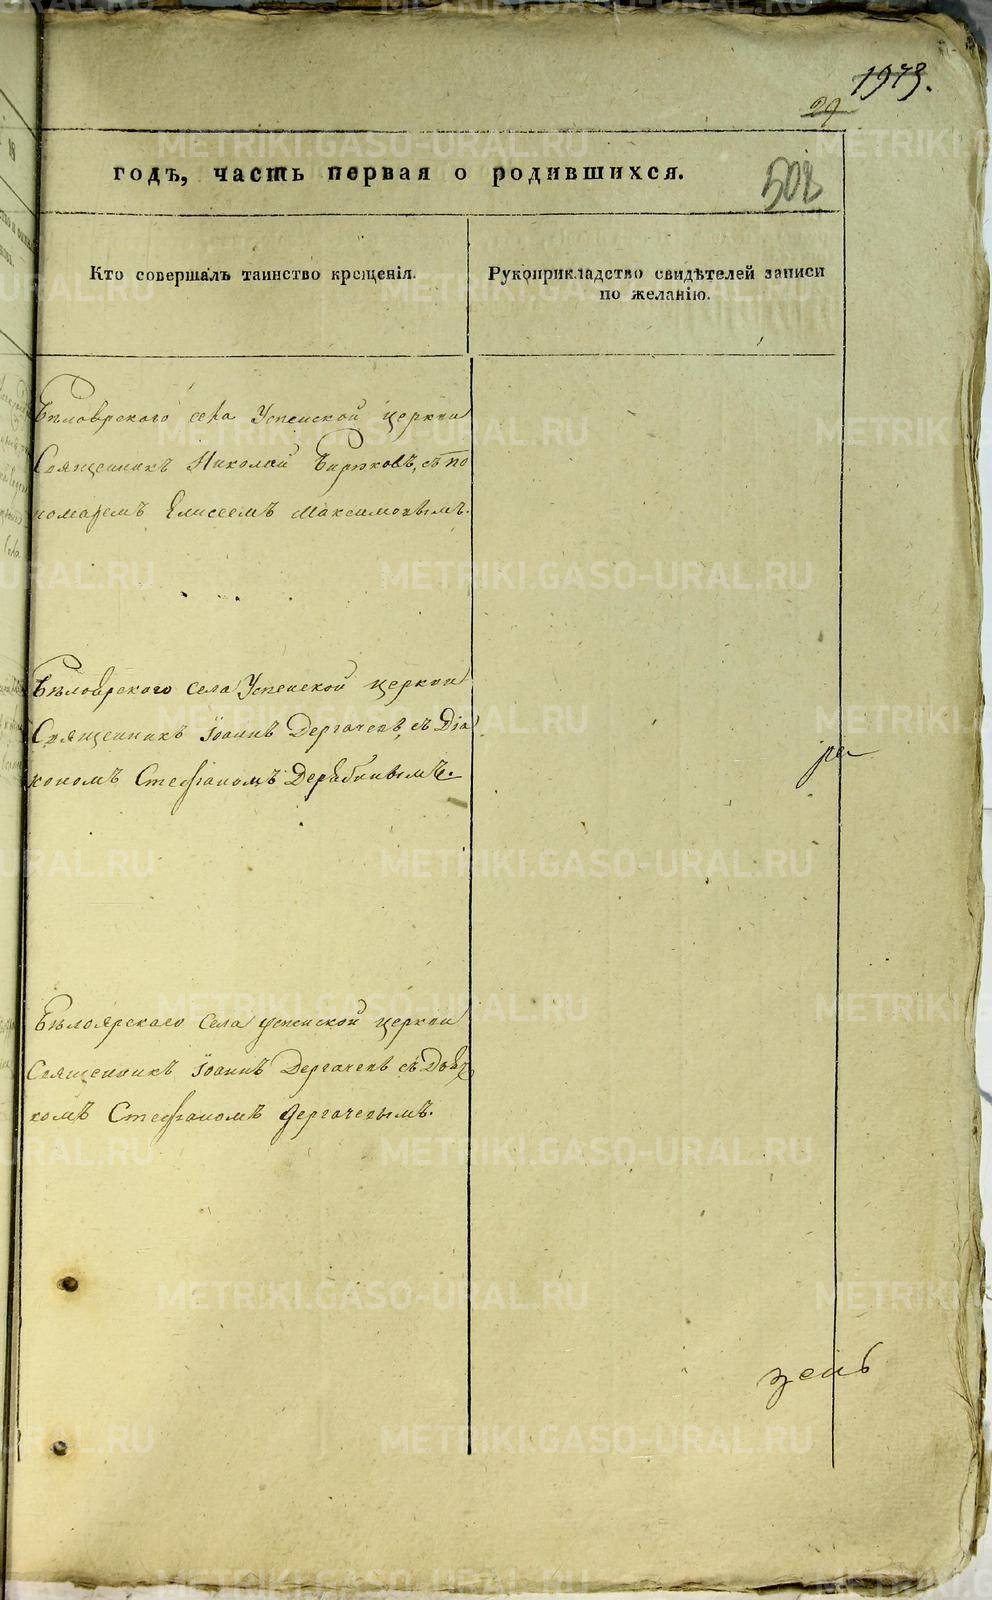 1973.
29
годъ, часть первая о родившихся.
508
Кто совершалъ таинство крещенія.
Рукоприкладство свидѣтелей записи
по желанію.
Бѣлоярского села Успенской церкви
Священникъ Николай Бирюковъ, съ по
номаремъ Елисеемъ Максимовымъ.
Бѣлоярского села Успенской церкви
Священникъ Іоаннъ Дергачевъ, съ Діа
кономъ Стефаномъ Дерябинымъ.
ре
Бѣлоярскаго села Успенской церкви
Священникъ Іоаннъ Дергачевъ съ Дьяч
комъ Стефаномъ Дергачевымъ.
METRIKI.GASO-URAL.RU